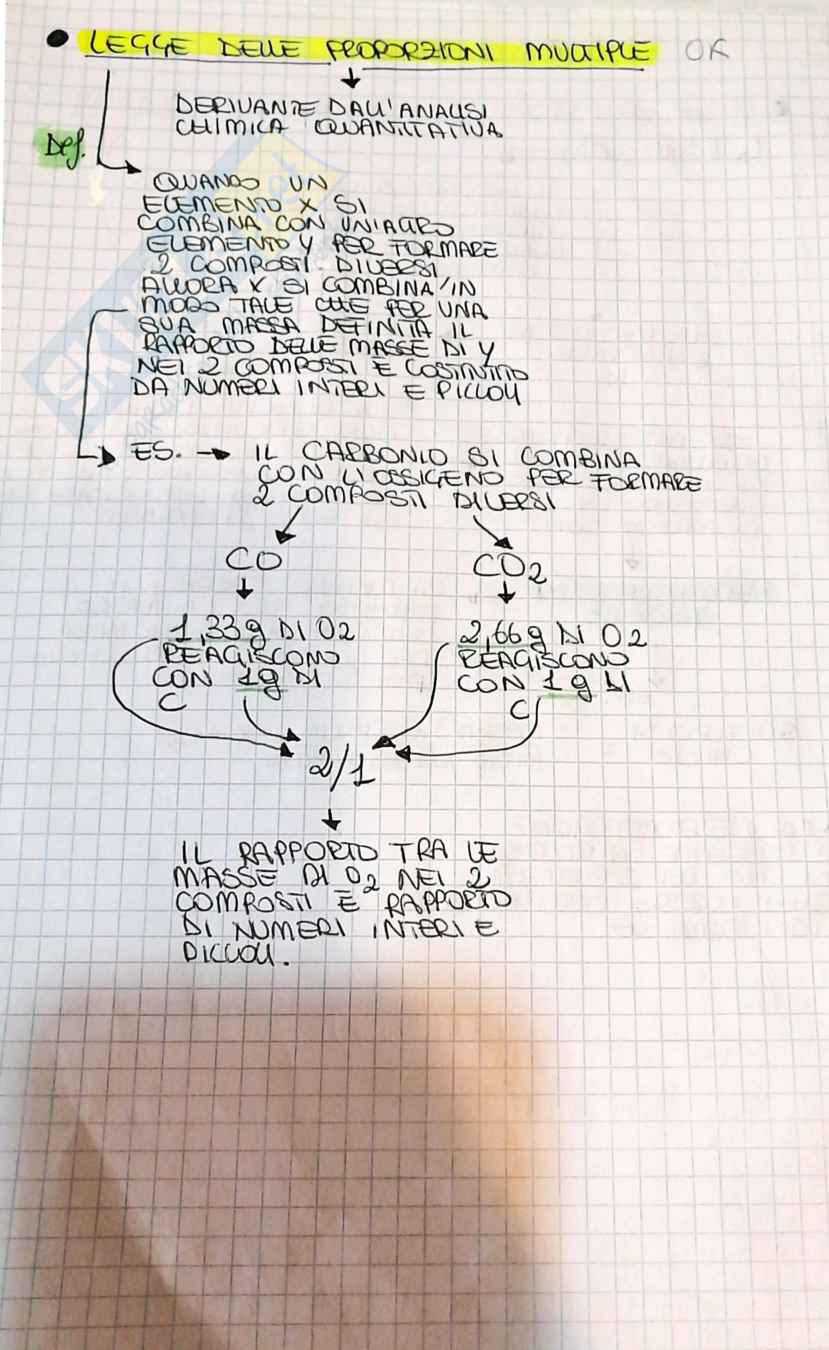 • LEGGE DELLE PROPORZIONI MULTIPLE OK
DERIVANTE DALL'ANALISI
CHIMICA QUANTITATIVA
Def.
QUANDO UN
ELEMENTO X SI
COMBINA CON UN'ALTRO
ELEMENTO Y PER FORMARE
2 COMPOSTI DIVERSI
ALLORA X SI COMBINA IN
MODO TALE CHE PER UNA
SUA MASSA DEFINITA IL
RAPPORTO DELLE MASSE DI Y
NEI 2 COMPOSTI È COSTITUITO
DA NUMERI INTERI E PICCOLI
ES. → IL CARBONIO SI COMBINA
CON L'OSSIGENO PER FORMARE
2 COMPOSTI DIVERSI
CO CO2
1,33g DI O2 2,66g DI O2
REAGISCONO REAGISCONO
CON 1g DI CON 1g DI
C C
2/1
IL RAPPORTO TRA LE
MASSE DI O2 NEI 2
COMPOSTI È RAPPORTO
DI NUMERI INTERI E
PICCOLI.